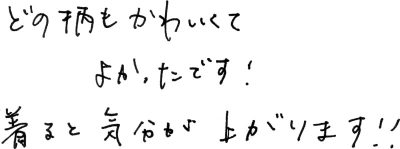 どの柄もかわいくて
よかったです!
着ると気分が上がります!!